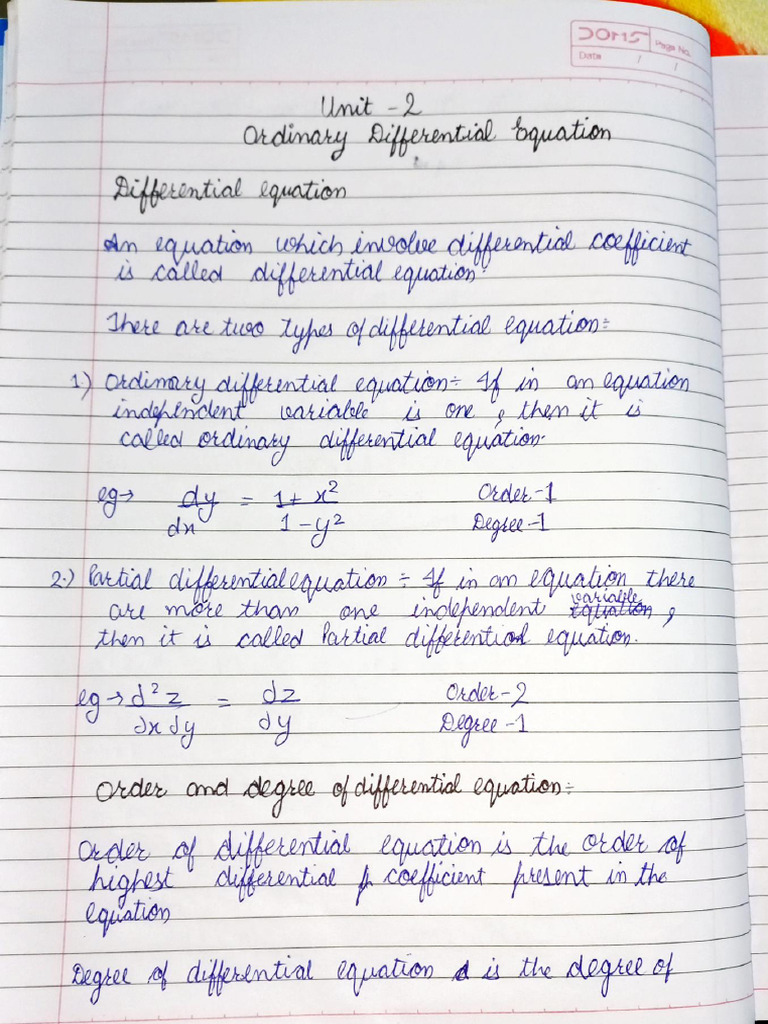 DOMS
Page No.
Date / /
Unit - 2
Ordinary Differential Equation
Differential equation
An equation which involve differential coefficient
is called differential equation.
There are two types of differential equation÷
1.) Ordinary differential equation÷ If in an equation
independent variable is one, then it is
called ordinary differential equation.
eg→ dy/dx = 1+x²/1-y² Order-1
Degree-1
2.) Partial differential equation ÷ If in an equation there
are more than one independent variable,
then it is called Partial differential equation.
eg→ ∂²z/∂x∂y = ∂z/∂y Order-2
Degree-1
Order and degree of differential equation÷
Order of differential equation is the order of
highest differential coefficient present in the
equation
Degree of differential equation is the degree of